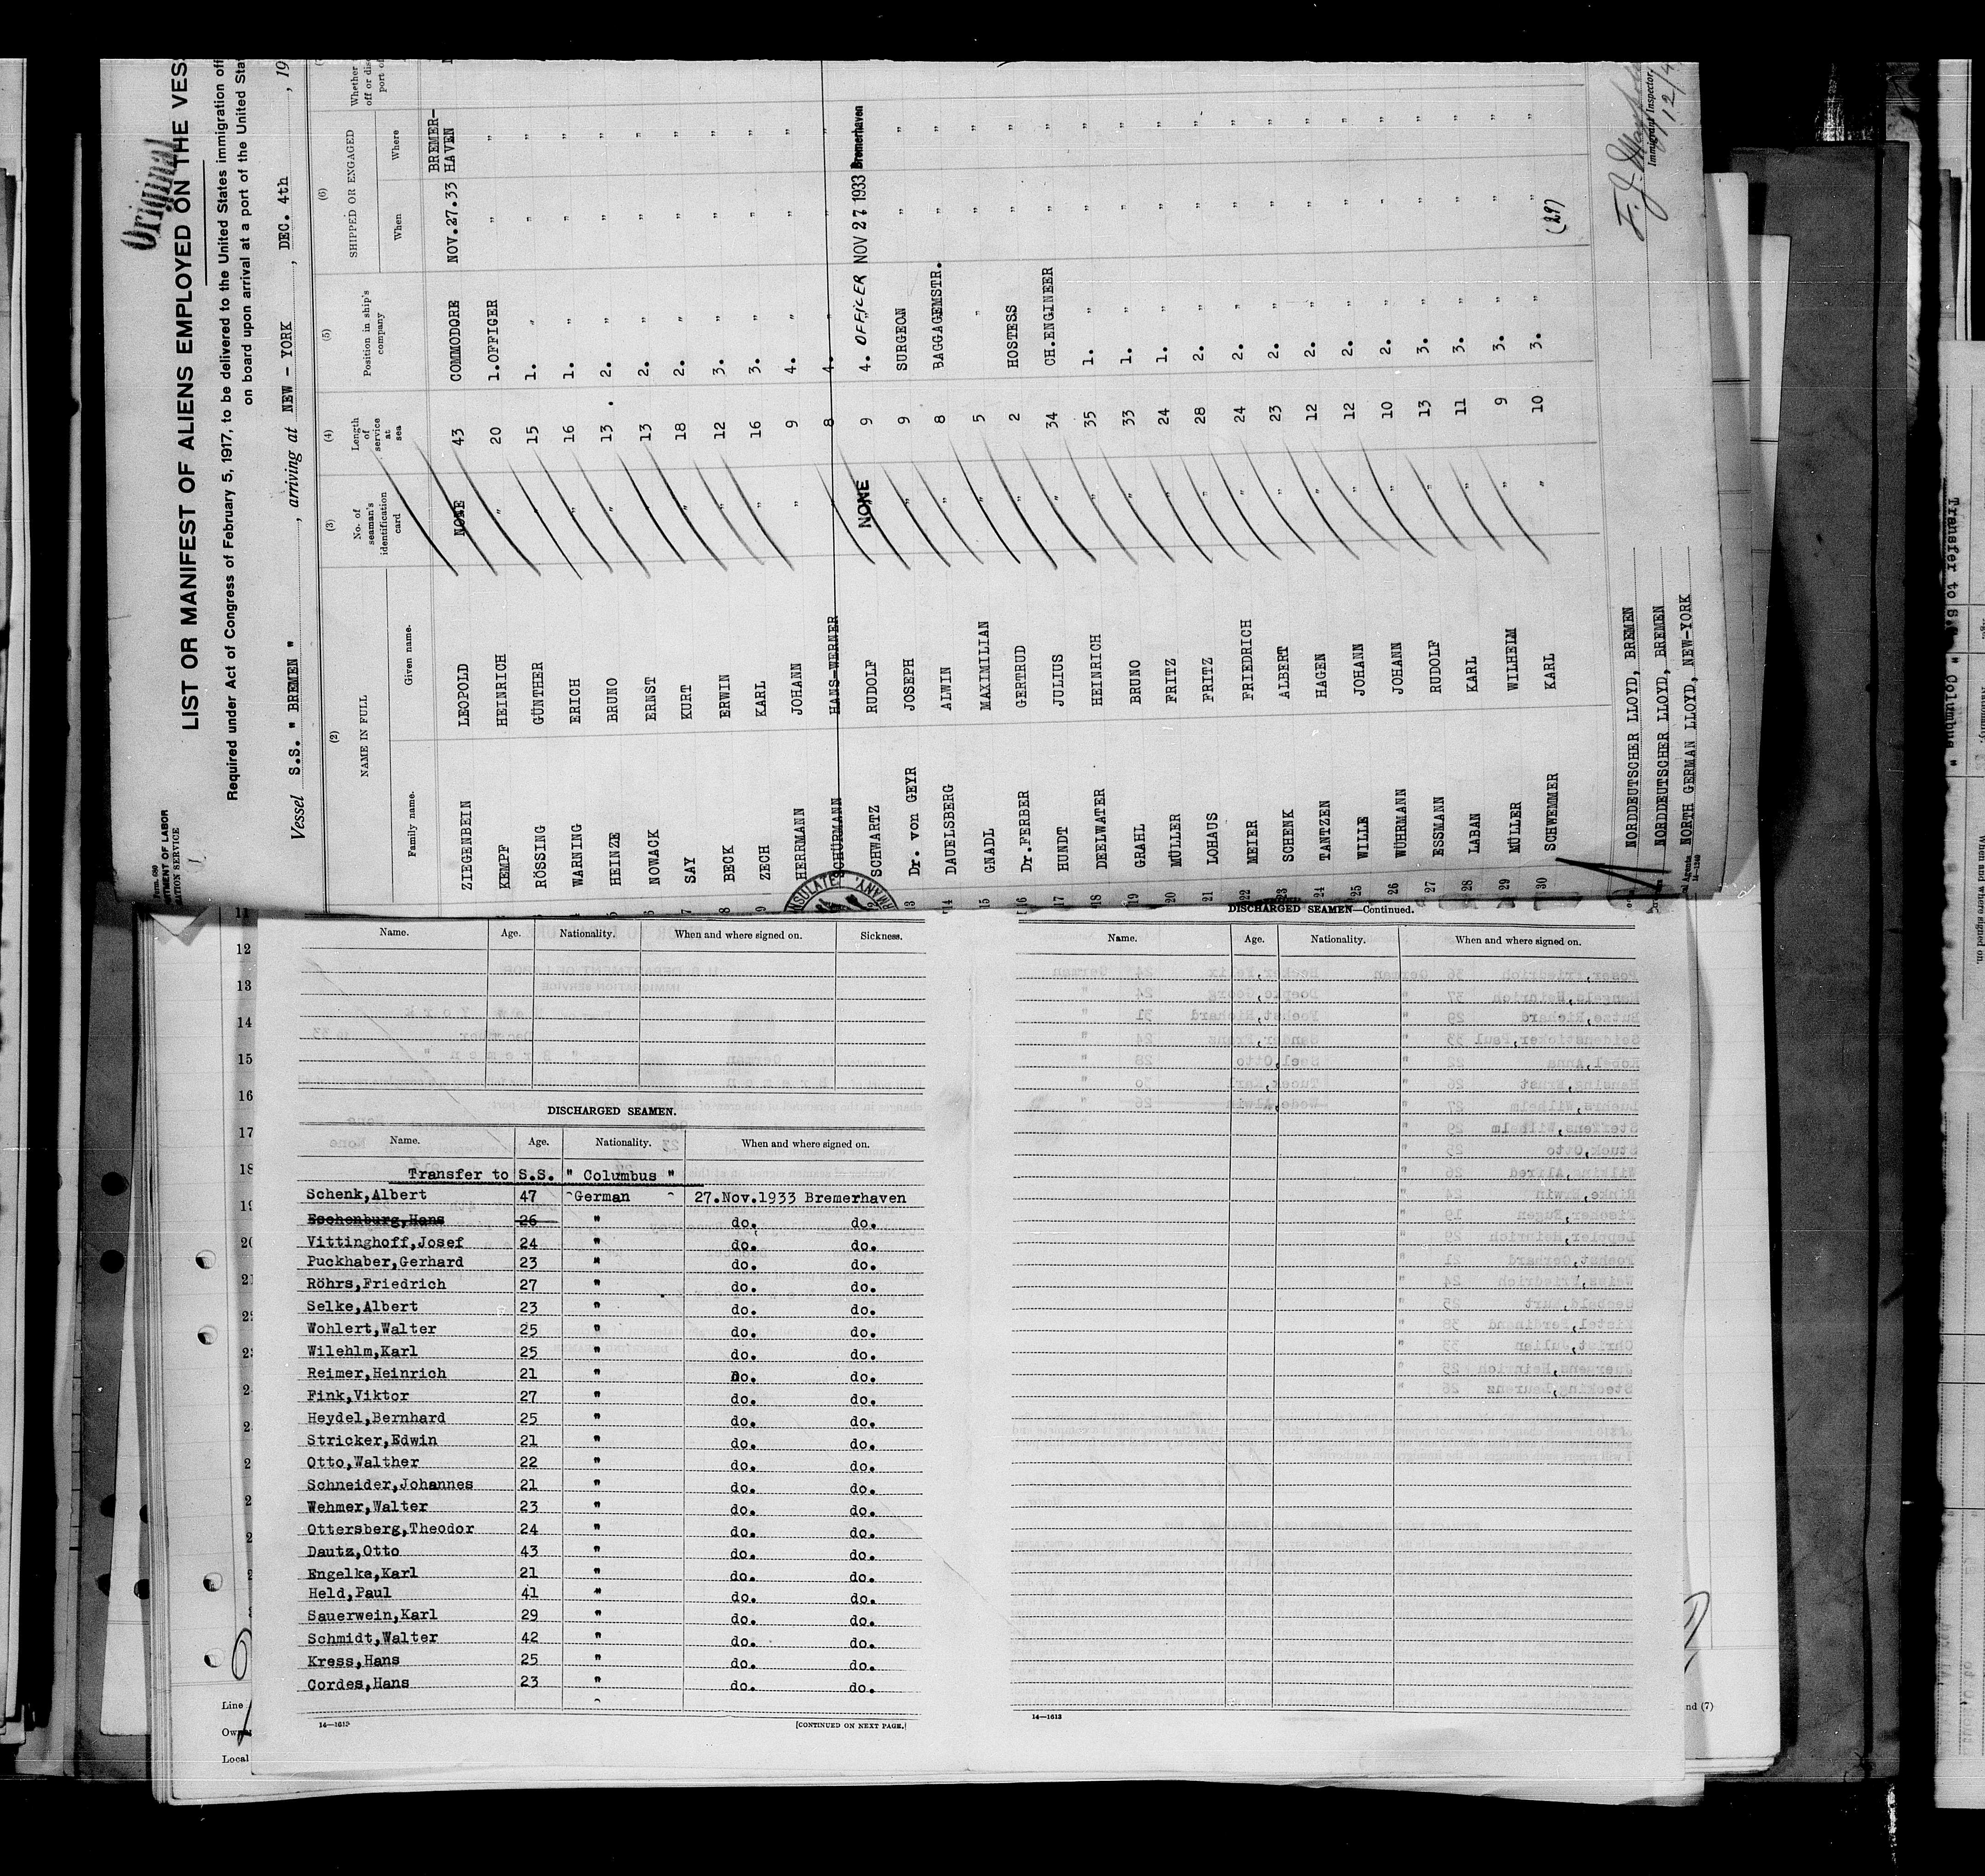 Original
LIST OR MANIFEST OF ALIENS EMPLOYED ON THE VESS
Required under Act of Congress of February 5, 1917, to be delivered to the United States immigration off
on board upon arrival at a port of the United Sta
Vessel S.S. " BREMEN " , arriving at NEW - YORK , DEC. 4th , 19
(2) (3) (4) (5) (6)
NAME IN FULL No. of seaman's identification card Length of service at sea Position in ship's company SHIPPED OR ENGAGED Whether
Family name. Given name. When Where
ZIEGENBEIN LEOPOLD NONE 43 COMMODORE NOV.27.33 BREMER-HAVEN
KEMPF HEINRICH " 20 1.OFFIGER " "
RÖSSING GÜNTHER " 15 1. " " "
WARNING ERICH " 16 1. " " "
HEINZE BRUNO " 13 2. " " "
NOWACK ERNST " 13 2. " " "
SAY KURT " 18 2. " " "
BECK ERWIN " 12 3. " " "
ZECH KARL " 16 3. " " "
HERRMANN JOHANN " 9 4. " " "
SCHÜRMANN HANS-WERNER 8 4. " " "
SCHWARTZ RUDOLF NONE 9 4. OFFICER NOV 27 1933 Bremerhaven
13 Dr. von GEYR JOSEPH " 9 SURGEON " "
14 DAUELSBERG ALWIN " 8 BAGGAGEMSTR. " "
15 GNADL MAXIMILIAN " 5 " " "
16 Dr.FERBER GERTRUD " 2 HOSTESS " "
17 HUNDT JULIUS " 34 CH.ENGINEER " "
18 DEELWATER HEINRICH " 35 1. " " "
19 GRAHL BRUNO " 33 1. " " "
20 MÜLLER FRITZ " 24 1. " " "
21 LOHAUS FRITZ " 28 2. " " "
22 MEIER FRIEDRICH " 24 2. " " "
23 SCHENK ALBERT " 23 2. " " "
24 TANTZEN HAGEN " 12 2. " " "
25 WILLE JOHANN " 12 2. " " "
26 WÜHRMANN JOHANN " 10 2. " " "
27 ESSMANN RUDOLF " 13 3. " " "
28 LABAN KARL " 11 3. " " "
29 MÜLLER WILHELM " 9 3. " " "
30 SCHWEMMER KARL " 10 3. " " "
(29)
NORDDEUTSCHER LLOYD, BREMEN
NORDDEUTSCHER LLOYD, BREMEN
NORTH GERMAN LLOYD, NEW-YORK
Immigrant Inspector.
Name. Age. Nationality. When and where signed on. Sickness.
DISCHARGED SEAMEN.
Name. Age. Nationality. When and where signed on.
Transfer to S.S. " Columbus "
Schenk,Albert 47 German 27.Nov.1933 Bremerhaven
Eschenburg,Hans 26 " do. do.
Vittinghoff,Josef 24 " do. do.
Puckhaber,Gerhard 23 " do. do.
Röhrs,Friedrich 27 " do. do.
Selke,Albert 23 " do. do.
Wohlert,Walter 25 " do. do.
Wilehlm,Karl 25 " do. do.
Reimer,Heinrich 21 " Do. do.
Fink,Viktor 27 " do. do.
Heydel,Bernhard 25 " do. do.
Stricker,Edwin 21 " do. do.
Otto,Walther 22 " do. do.
Schneider,Johannes 21 " do. do.
Wehmer,Walter 23 " do. do.
Ottersberg,Theodor 24 " do. do.
Dautz,Otto 43 " do. do.
Engelke,Karl 21 " do. do.
Held,Paul 41 " do. do.
Sauerwein,Karl 29 " do. do.
Schmidt,Walter 42 " do. do.
Kress,Hans 25 " do. do.
Cordes,Hans 23 " do. do.
14—1613 [CONTINUED ON NEXT PAGE.]
DISCHARGED SEAMEN—Continued.
Name. Age. Nationality. When and where signed on.
14—1613
Line
Local
nd (7)
Transfer to S.S. " Columbus "
When and where signed on.